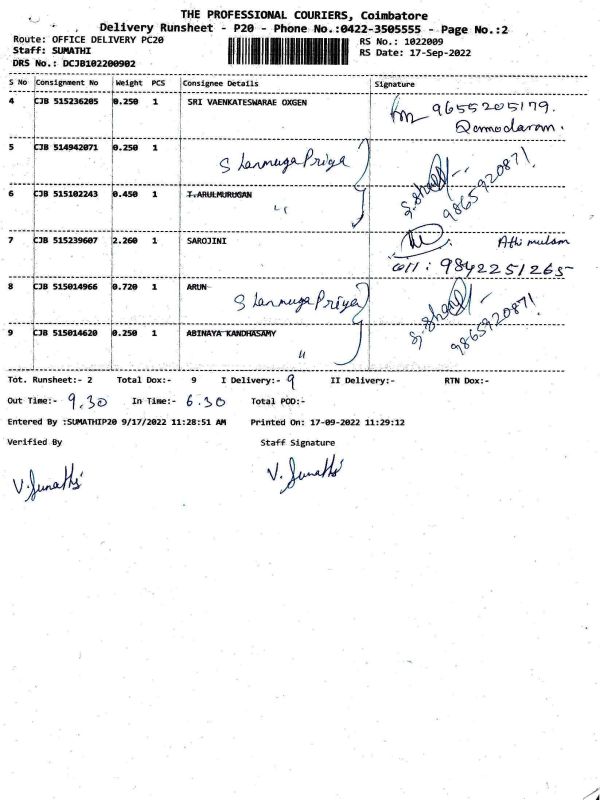 THE PROFESSIONAL COURIERS, Coimbatore
Delivery Runsheet - P20 - Phone No.:0422-3505555 - Page No.:2
Route: OFFICE DELIVERY PC20 RS No.: 1022009
Staff: SUMATHI RS Date: 17-Sep-2022
DRS No.: DCJB102200902
S No Consignment No Weight PCS Consignee Details Signature
4 CJB 515236205 0.250 1 SRI VAENKATESWARAE OXGEN 9655205179.
Damodaran.
5 CJB 514942071 0.250 1
S Hanmuga Priya
6 CJB 515102243 0.450 1 T.ARULMURUGAN
"
9865920871.
7 CJB 515239607 2.260 1 SAROJINI Athi mulam
Cell: 9842251265
8 CJB 515014966 0.720 1 ARUN
S Hanmuga Priya
9 CJB 515014620 0.250 1 ABINAYA KANDHASAMY
"
9865920871
Tot. Runsheet:- 2 Total Dox:- 9 I Delivery:- 9 II Delivery:- RTN Dox:-
Out Time:- 9.30 In Time:- 6.30 Total POD:-
Entered By :SUMATHIP20 9/17/2022 11:28:51 AM Printed On: 17-09-2022 11:29:12
Verified By Staff Signature
V. Sumathi V. Sumathi